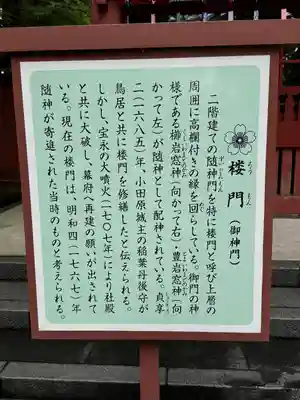 楼門(御神門)
二階建ての随神門を特に楼門と呼び上層の
周囲に高欄付きの縁を回らしている。御門の神
様である櫛岩窓神(向かって右)・豊岩窓神(向
かって左)が随神として配神されている。貞享
二(一六八五)年、小田原城主の稲葉丹後守が
鳥居と共に楼門を修繕したと伝えられる。
しかし、宝永の大噴火(一七〇七年)により社殿
と共に大破し、幕府へ再建の願いが出されて
いる。現在の楼門は、明和四(一七六七)年
随神が寄進された当時のものと考えられる。